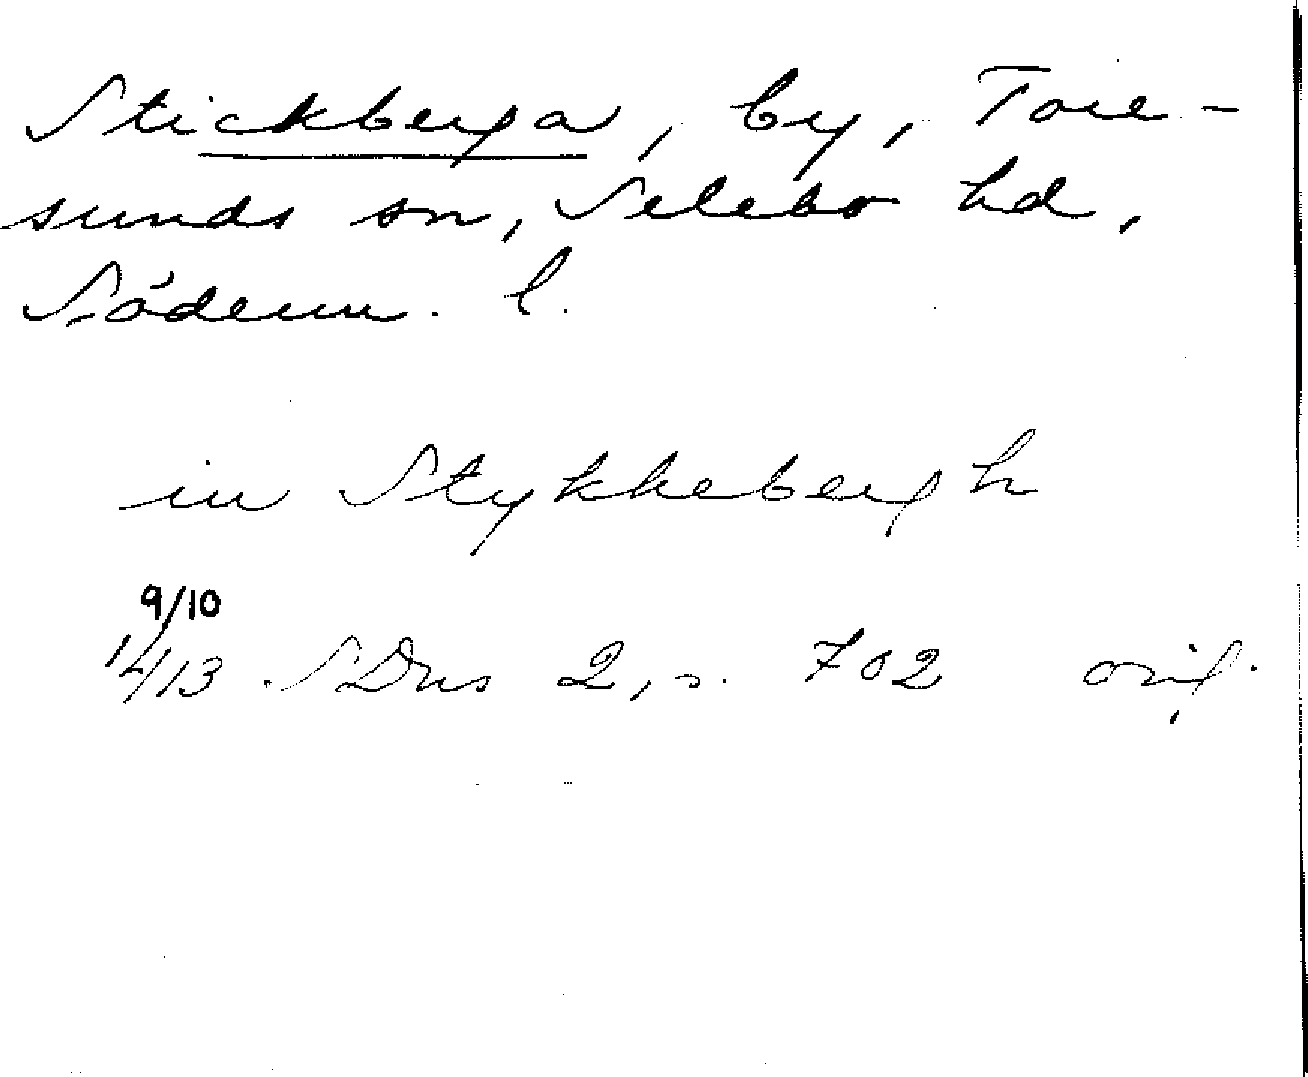 Stickberga, by, Tore-
sunds sn, Selebo hd,
Söderm. l.
in Stykkebergh
9/10
14/13 SDns 2, s. 702 orig.